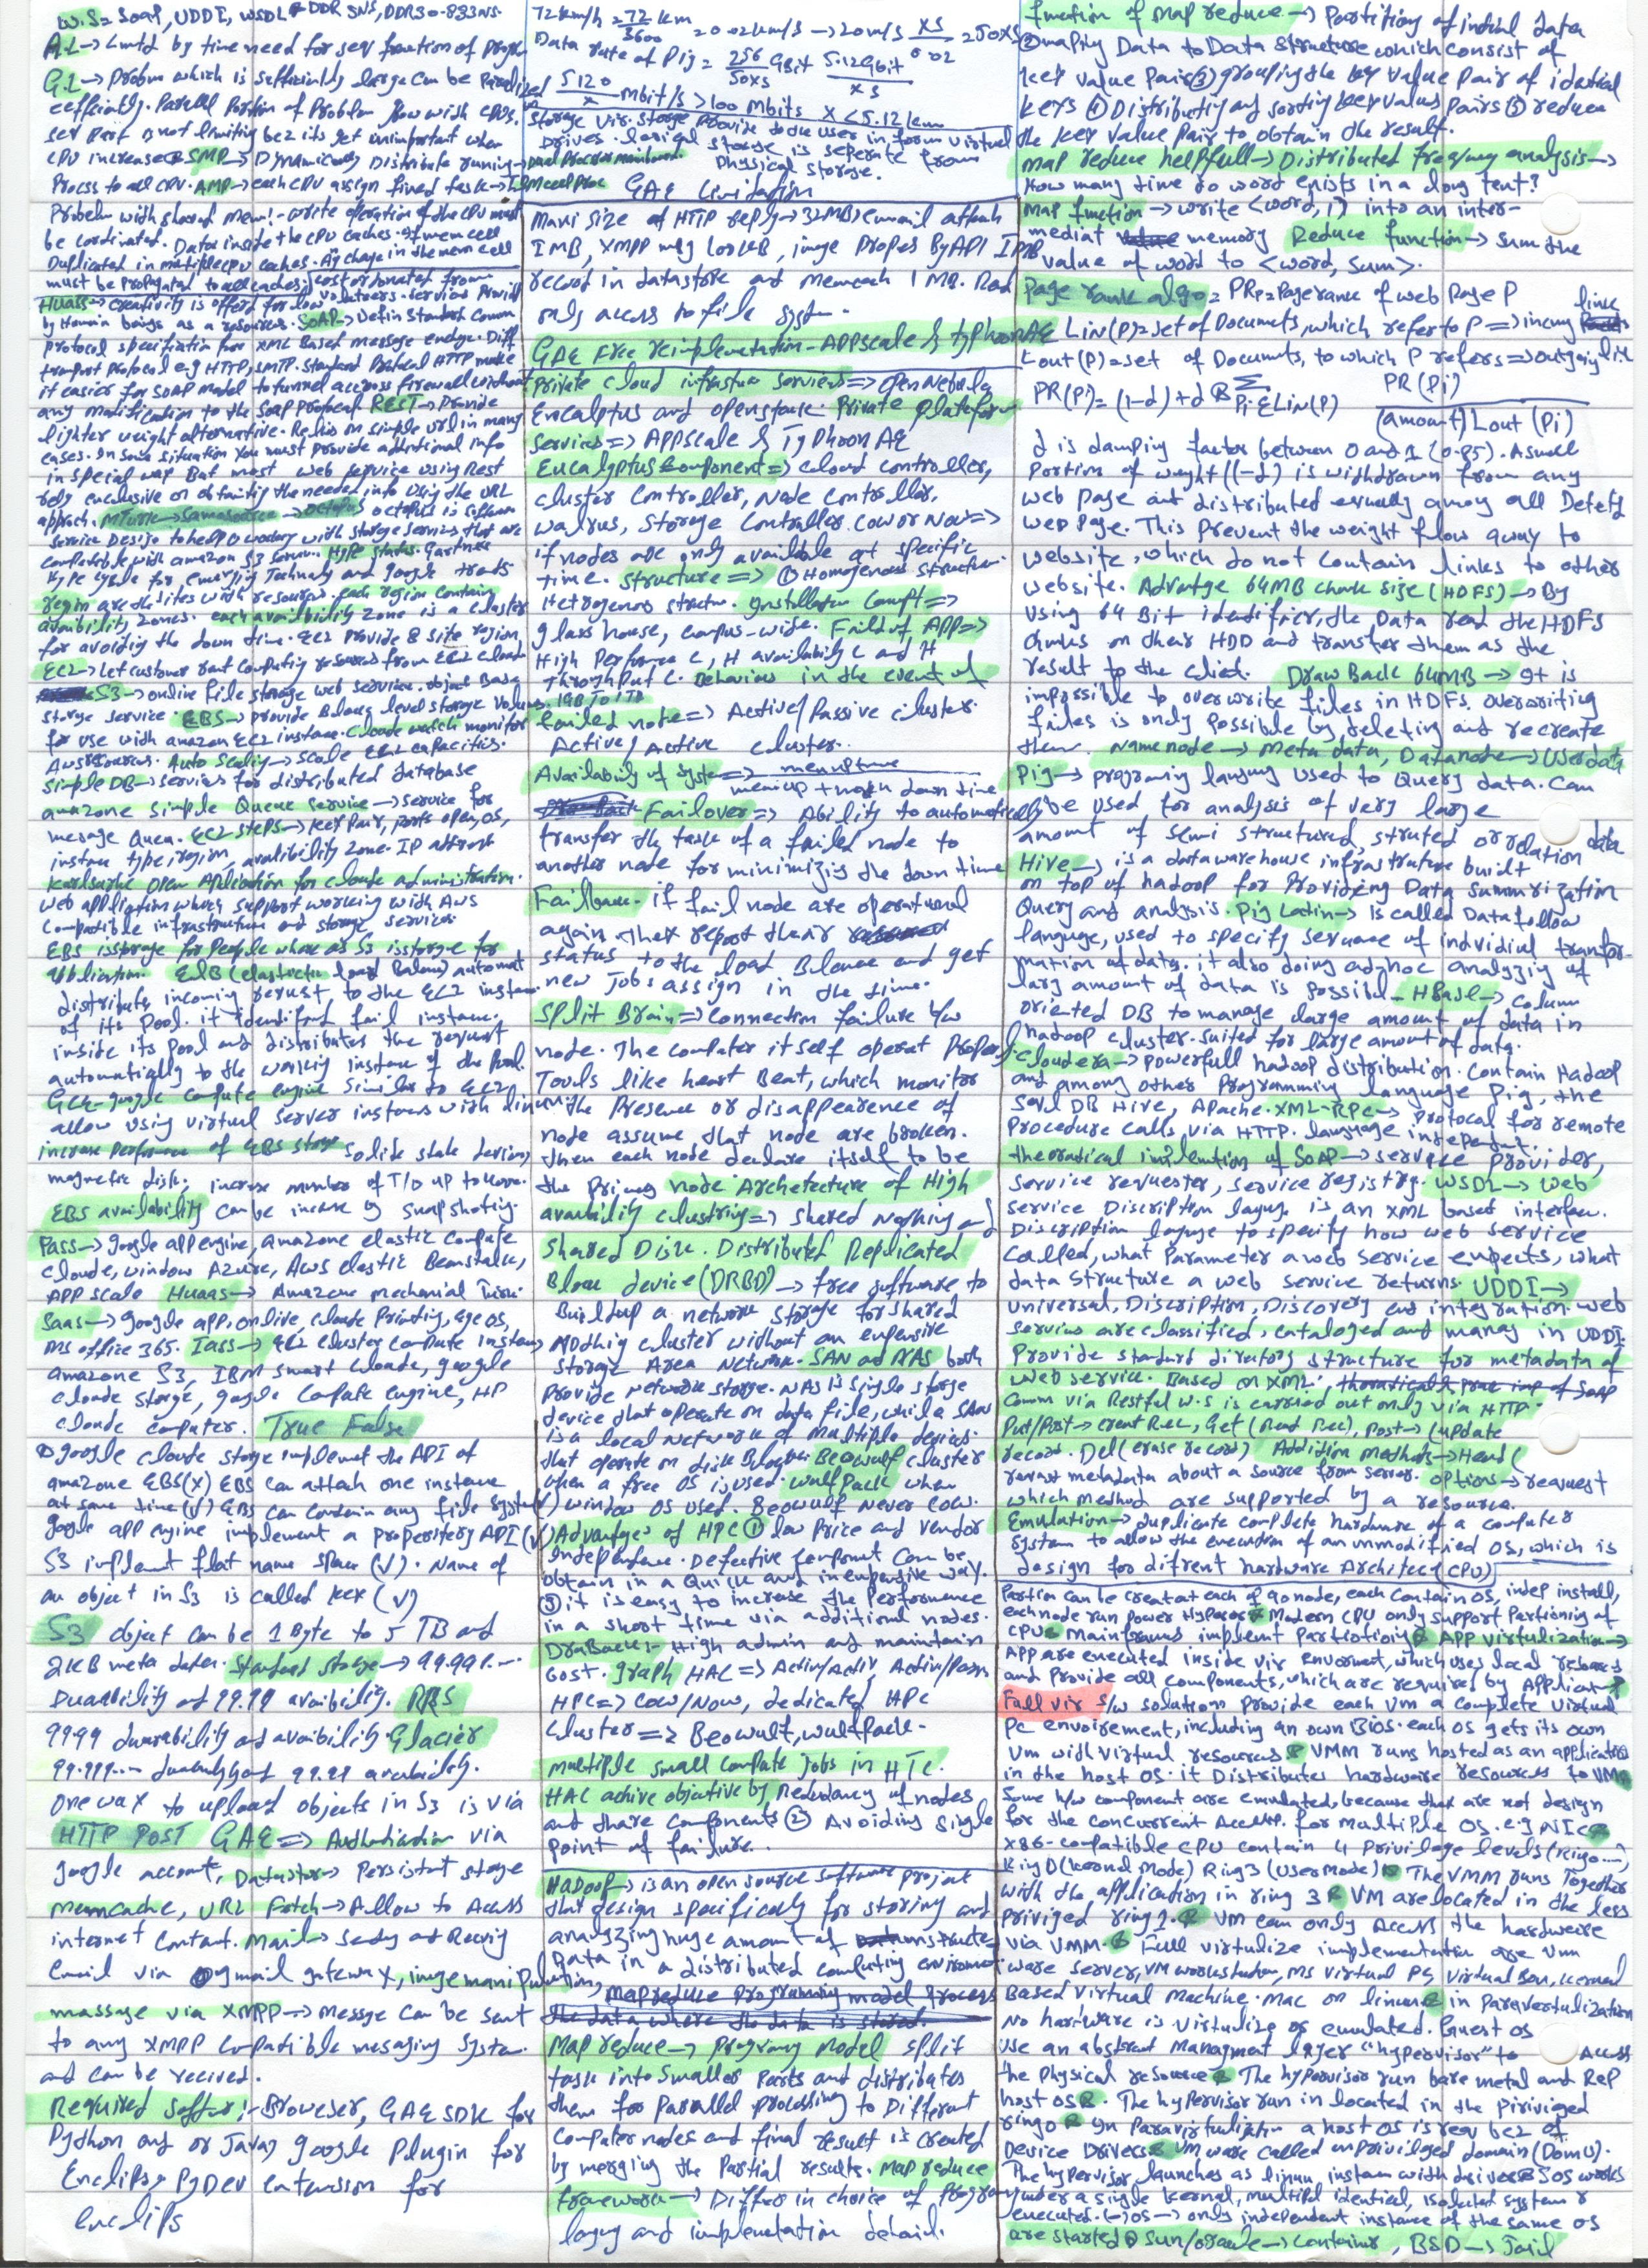 W.S = Soap, UDDI, WSDL DDR SNS, DDR30-833NS.
A.L → Lmtd by time need for seq fraction of progr
G.L → Problem which is sufficiently large can be Paralized
efficiently. Parallel Portion of Problem grow with CPUs.
seq Part is not limiting bcz its get unimportant when
CPU increase SMP → Dynamically Distribute runing
Process to all CPU. AMP → each CPU assign fixed task →
Probelm with shared mem! - write operation of the CPU must
be cordinated. Data inside the CPU caches. If mem cell
Duplicated in multiple cpu caches. Any chage in the mem cell
must be propagated to all caches.
HUaas → creativity is offerd for low
by Human beings as a resources. SOAP → Defin Standard Comm
protocol specification for XML Based message exchge. Diff
transport protocol e.g HTTP, SMTP. Standard Protocal HTTP make
it easier for SOAP model to tunnel accross firewall without
any modification to the Soap Protocol REST → Provide
lighter weight alternative. Relies on simple url in many
cases. In some situation you must provide additional info
in special way But most web service using Rest
rely exclusive on obtainig the needed info using the URL
approch. MTurk → Samasource → octopus octopus is software
service Desige to help working with storage services that are
compatible with amazon S3 Forum. Hype states. Gartners
Hype cycle for emerging Technoly and google trads
regin are the sites with resources. each region containg
avaibility zones. each availability zone is a cluster
for avoidig the down time. EC2 Provide 8 site region,
EC2 → Let customer rent computig resources from EC2 cloud
S3 → online file storage web service. object Base
storge service. EBS → provide Block level storage Volums. 1GB TO 1TB
for use with amazon EC2 instance. Cloude watch monitor
Aws resources. Auto Scalig → scale EC2 capacities.
Simple DB → services for distributed database
amazone simple Queue service → service for
message Queu. EC2 steps → key Pair, Ports open, os,
instan type, region, avalibility zone. IP address
Karlsruhe Open Application for cloude administration.
web appliction which support working with AWS
Compatible infrastructure and storge services.
EBS is storge for People where as S3 is storge for
Publication. ELB (elastic load Balance) automat
distribute incoming request to the EC2 instan
of its Pool. it identifed fail instance.
inside its pool and distributes the request
automatically to the working instance of the Pool.
GCE - google compute engine Similar to EC2
allow using virtual server instances with linux
increse Performence of EBS storge Solide state device,
magnetic disk, increse number of I/O up to
EBS availability can be increse by snapshoting.
Paas → google app engine, amazone elastic compute
cloude, window Azure, Aws elastic Beanstalk,
App scale Huaas → Amazone mechanial Turk.
Saas → google app, onlive, cloude Printing, eye os,
MS office 365. Iaas → EC2 cluster compute instans
amazone S3, IBM smart cloude, google
cloude storge, google compute engine, HP
cloude computer. True False
google cloude storge implemet the API of
amazone EBS(x) EBS can attach one instance
at same time (√) EBS can contain any file system(√)
google app engine implement a properitery API (√)
S3 implemt flat name space (√). Name of
an object in S3 is called key (√)
S3 object can be 1 Byte to 5 TB and
2KB meta data. Standard storage → 99.99...
Durability and 99.99 avaibility. RRS
99.99 durability and avaibility. Glacier
99.999... durability and 99.99 avaibility.
One way to upload objects in S3 is via
HTTP POST GAE => Authentication via
google account, Datastor → Persistant storge
memcache, URL Fetch → Allow to Access
internet Contant. Mail → Sendig and Receivig
Email via gmail gateway, image manipulation,
massage via XMPP → message can be sent
to any XMPP Compatible mesaging system.
and can be recived.
Required softer :- Browser, GAE SDK for
Python and or Java, google Plugin for
Enclips, PyDev extension for
enclips
72 km/h = 72 km / 3600 = 0.02 km/s → 20 m/s
Data rate of Pig = 256 Gbit / 50xs
5120 / x Mbit/s > 100 Mbits x < 5.12 km
Storage Vir. Storge Provide to the user in form virtual
Drives. logical storge is seperate from
Physical storge.
GAE Limitation
Maxi size of HTTP reply → 32MB, email attach
1MB, XMPP msg 100KB, image Propes By API 1MB
record in datastore and Memcach 1 MB. Read
only access to file system.
GAE Free reimplemetation - AppScale & typhoonAE
Private cloud infrastur services => OpenNebula
Eucalptus and openstack. Private plateform
Services => Appscale & TyphoonAE
Eucalyptus Component => cloud controller,
cluster Controller, Node Controller,
walrus, Storage Controller. COW or Now =>
if nodes are only available at specific
time. Structure => ① Homogenous structure
Hetrogenos structur. Installation Compt =>
glass house, campus-wide. Field of App =>
High Performence C, H availability C and H
Throughput C. Behaviour in the event of
failed note => Active/Passive cluster.
Active/Active cluster.
Availability of system => mean uptime / mean up + mean down time
Failover => Ability to automatically
transfer the task of a failed node to
another node for minimizig the down time
Failback - if fail node are operational
again. They report their
status to the load Balance and get
new Jobs assign in the time.
Split Brain => Connection failure b/w
node. The computer it self operat Proper
Tools like heart Beat, which monitor
the Presence or disappearence of
node assume that node are broken.
then each node declare itself to be
the Primary node Archetecture of High
availability clustring => shared Nothing and
Shared Disk. Distributed Replicated
Block device (DRBD) → free software to
Buildup a network storage for shared
Nothig cluster without an expensive
storge Area Network. SAN and NAS both
provide network storge. NAS is single storge
device that operate on data file, while a SAN
is a local network of multiple devices
that operate on disk blocks. Beowulf cluster
when a free OS is used. wulfPack when
window OS used. Beowulf never cow.
Advantages of HPC ① low Price and Vendor
Independence. Defective component can be
obtain in a Quick and inexpensive way.
③ it is easy to increase the Performance
in a short time via additional nodes.
DrawBack :- High admin and maintain
Cost. graph HAC => Activ/Activ, Activ/Pass.
HPC => COW/Now, dedicated HPC
cluster => Beowulf, wulfPack.
multiple small compute Jobs in HTC.
HAC achive objective by Redudancy of nodes
and share Components ② Avoiding single
Point of failure.
Hadoop → is an open source software project
that design specifically for storing and
analyzing huge amount of unstructe
Data in a distributed computing enviroment
mapreduce Programming model process
the data where the data is stored.
Map reduce → programy model split
task into smaller Parts and distributes
them for parallel processing to Different
Computer nodes and final result is created
by merging the Partial results. Map reduce
framework → Differ in choice of Program
langug and implemetation detail.
function of map reduce → Partitiong of initial data
② maping Data to Data structure which consist of
key value pairs ③ grouping the key value pair of idetical
keys ④ Distributig and sorting key value pairs ⑤ reduce
the key value pair to obtain the result.
map reduce helpfull → Distributed freqncy analysis →
How many time do word exists in a long text?
Map function → write <word, 1> into an inter-
mediat memory Reduce function → sum the
value of word to <word, sum>.
Page rank algo = PRp = Page rank of web page P
Lin(P) = set of Documets, which refer to P => incmg link
Lout(P) = set of Documets, to which P refers => outgoig link
PR(P) = (1-d) + d Σ Pi ∈ Lin(P) PR(Pi) / (amount) Lout(Pi)
d is damping factor between 0 and 1 (0.85). A small
Portion of weight (1-d) is withdrawn from any
web page and distributed equally amog all Detectd
web Page. This prevent the weight flow away to
website, which do not contain links to other
website. Advatge 64MB chunk size (HDFS) → By
using 64 Bit identifier, the Data read the HDFS
chunks on their HDD and transfer them as the
result to the client. DrawBack 64MB → It is
impossible to overwrite files in HDFS. Overwriting
files is only possible by deleting and recreate
them. Namenode → Meta data, Datanode → Userdata
Pig → programing languag used to Query data. Can
be used for analysis of very large
amount of semi structured, structed or relation data
Hive → is a dataware house infrastrature built
on top of hadoop for Providing Data summrization
Query and analysis. Pig Latin → Is called Datafollow
languge, used to specify sequance of individial transfor-
mation of data. it also doing ad-hoc analyzig of
larg amount of data is possibl. HBase → Column
oriented DB to manage large amount of data in
hadoop cluster. suited for large amount of data.
Cloudera → powerfull hadoop distribution. Contain Hadoop
and among other Programming language Pig, the
DB Hive, Apache. XML-RPC → Protocal for remote
Procedure calls via HTTP. language indepedent.
theoratical implemtion of SOAP → service provider,
service requester, service registry. WSDL → web
service Discription languge is an XML based interface.
Discription languge to specify how web service
called, what parameter a web service expects, what
data structure a web service returns. UDDI →
Universal, Discription, Discovery and integration. web
services are classified, cataloged and manag in UDDI.
Provide standard diractory structure for metadata of
web service. Based on XML.
Comm via Restful W.S is carried out only via HTTP.
Put/Post → creat Rec, Get (Read Rec), Post → (update
record. Del (erase record) Addition methods → Head (
request metadata about a source from server. options → request
which method are supported by a resource.
Emulation → duplicate complete hardware of a computer
system to allow the execution of an unmodified OS, which is
design for difrent hardware Architecy (CPU)
Partion can be creat each of node, each Contain OS, indep install,
each node run Power Hyper Modern CPU only support Partioning of
CPU. Mainframs implemt Partiotioing APP virtulization →
APP are executed inside vir enviroment, which uses local resources
and provide all components, which are requires by Applicat
Full vir s/w solution Provide each VM a complete virtual
PC envoirement, including an own Bios. each OS gets its own
VM with virtual resources VMM runs hosted as an application
in the host OS. it Distributes hardware resources to VMs
Some h/w component are emulated, because they are not design
for the concurrent Access. for multiple OS. e.g NIC
X86-compatible CPU contain 4 Privilage levels (Ring0...)
Ring 0 (kernel Mode) Ring 3 (User Mode) The VMM runs Together
with the application in ring 3 VM are located in the less
priviged ring 1. VM can only Access the hardware
via VMM. Full virtulize implementation are vm
ware server, VM workstation, MS Virtual PC, Virtual Box, kernel
Based Virtual Machine. Mac on linux in Paravertulization
No hardware is virtulize or emulated. Guest OS
use an abstract Managment layer "hypervisor" to Access
the physical resource The hypervisor run bare metal and Rep
host OS. The hypervisor run in located in the priviged
ring 0 In Paravirtulizatin a host OS is req bcz of
Device Drivers VM ware called unpriviloged domain (DomU).
The hypervisor launches as linux instan with drivers OS works
under a single kernel, multipl identical, isolated system
executed. (-) OS → only independent instance of the same OS
are started Sun/oracle → container, BSD → Jail